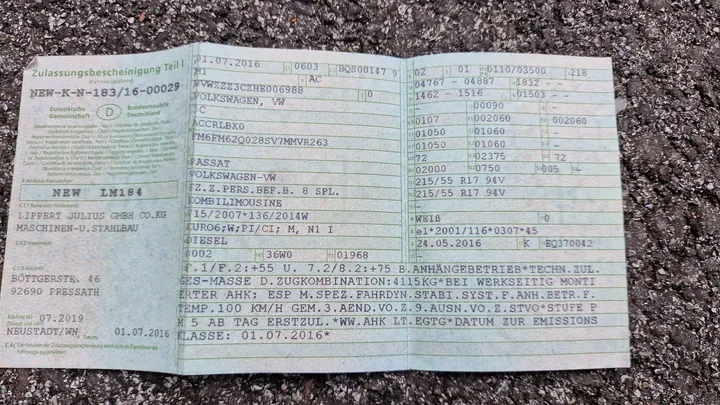 Zulassungsbescheinigung Teil I
NEW-K-N-183/16-00029
Europäische Gemeinschaft
D
Bundesrepublik Deutschland
NEW LM184
LIPPERT JULIUS GMBH CO.KG
MASCHINEN-U.STAHLBAU
C.1.3 Anschrift
BÖTTGERSTR. 46
92690 PRESSATH
07.2019
NEUSTADT/WN 01.07.2016
01.07.2016 0603 BQS00147 9
M1 AC
WVWZZZ3CZHE006988 0
VOLKSWAGEN, VW
3C
ACCRLBX0
FM6FM62Q028SV7MMVR263
PASSAT
VOLKSWAGEN-VW
FZ.Z.PERS.BEF.B. 8 SPL.
KOMBILIMOUSINE
715/2007*136/2014W
EURO6;W;PI/CI; M, N1 I
DIESEL
0002 36W0 01968
02 01 0110/03500 218
04767 - 04887 1832 -
1462 - 1516 01503 -
00090 -
0107 002060 002060
01050 01060 -
01050 01060 -
72 02375 72
02000 0750 005 -
215/55 R17 94V
215/55 R17 94V
-
WEIß 0
e1*2001/116*0307*45
24.05.2016 K EQ370042
F.1/F.2:+55 U. 7.2/8.2:+75 B.ANHÄNGEBETRIEB*TECHN.ZUL.
GES-MASSE D.ZUGKOMBINATION:4115KG*BEI WERKSEITIG MONTI
ERTER AHK: ESP M.SPEZ.FAHRDYN.STABI.SYST.F.ANH.BETR.F.
TEMP.100 KM/H GEM.3.AEND.VO.Z.9.AUSN.VO.Z.STVO*STUFE P
M 5 AB TAG ERSTZUL.*WW.AHK LT.EGTG*DATUM ZUR EMISSIONS
KLASSE: 01.07.2016*